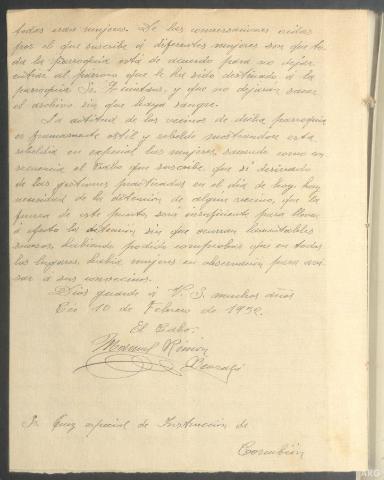 todas eran mujeres. De las conversaciones oidas
por el que suscribe á diferentes mujeres son que to-
da la parroquia está de acuerdo para no dejar
entrar al párroco que le ha sido destinado á la
parroquia Sr. Quintans, y que no dejaran sacar
el archivo sin que haya sangre.
La actitud de los vecinos de dicha parroquia
es francamente ostil y rebelde mostrandose esta
rebeldia en especial las mujeres, sacando como con-
secuencia el Cabo que suscribe que si derivado
de las gestiones practicadas en el dia de hoy hay
necesidad de la detencion de algun vecino, que la
fuerza de este puesto, seria insuficiente para llevar
á efecto la detencion sin que ocurran lamentables
sucesos, habiendo podido comprobar que en todos
los lugares, habia mujeres en observacion para avi-
sar á sus convecinos.
Dios guarde á V. S. muchos años
Cée 10 de Febrero de 1932.
El Cabo:
Manuel Rémion
Sr. Juez especial de Instruccion de
Corcubión
ARG